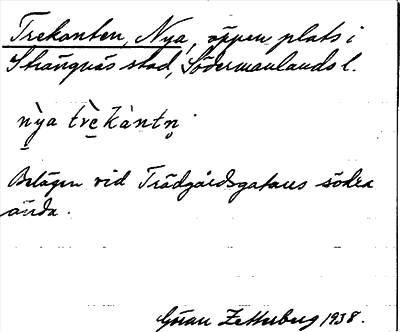 Trekanten, Nya, öppen plats i
Strängnäs stad, Södermanlands l.
nỳa trèkàntn̥
Belägen vid Trädgårdsgatans södra
ända.
Göran Zetterberg 1938.